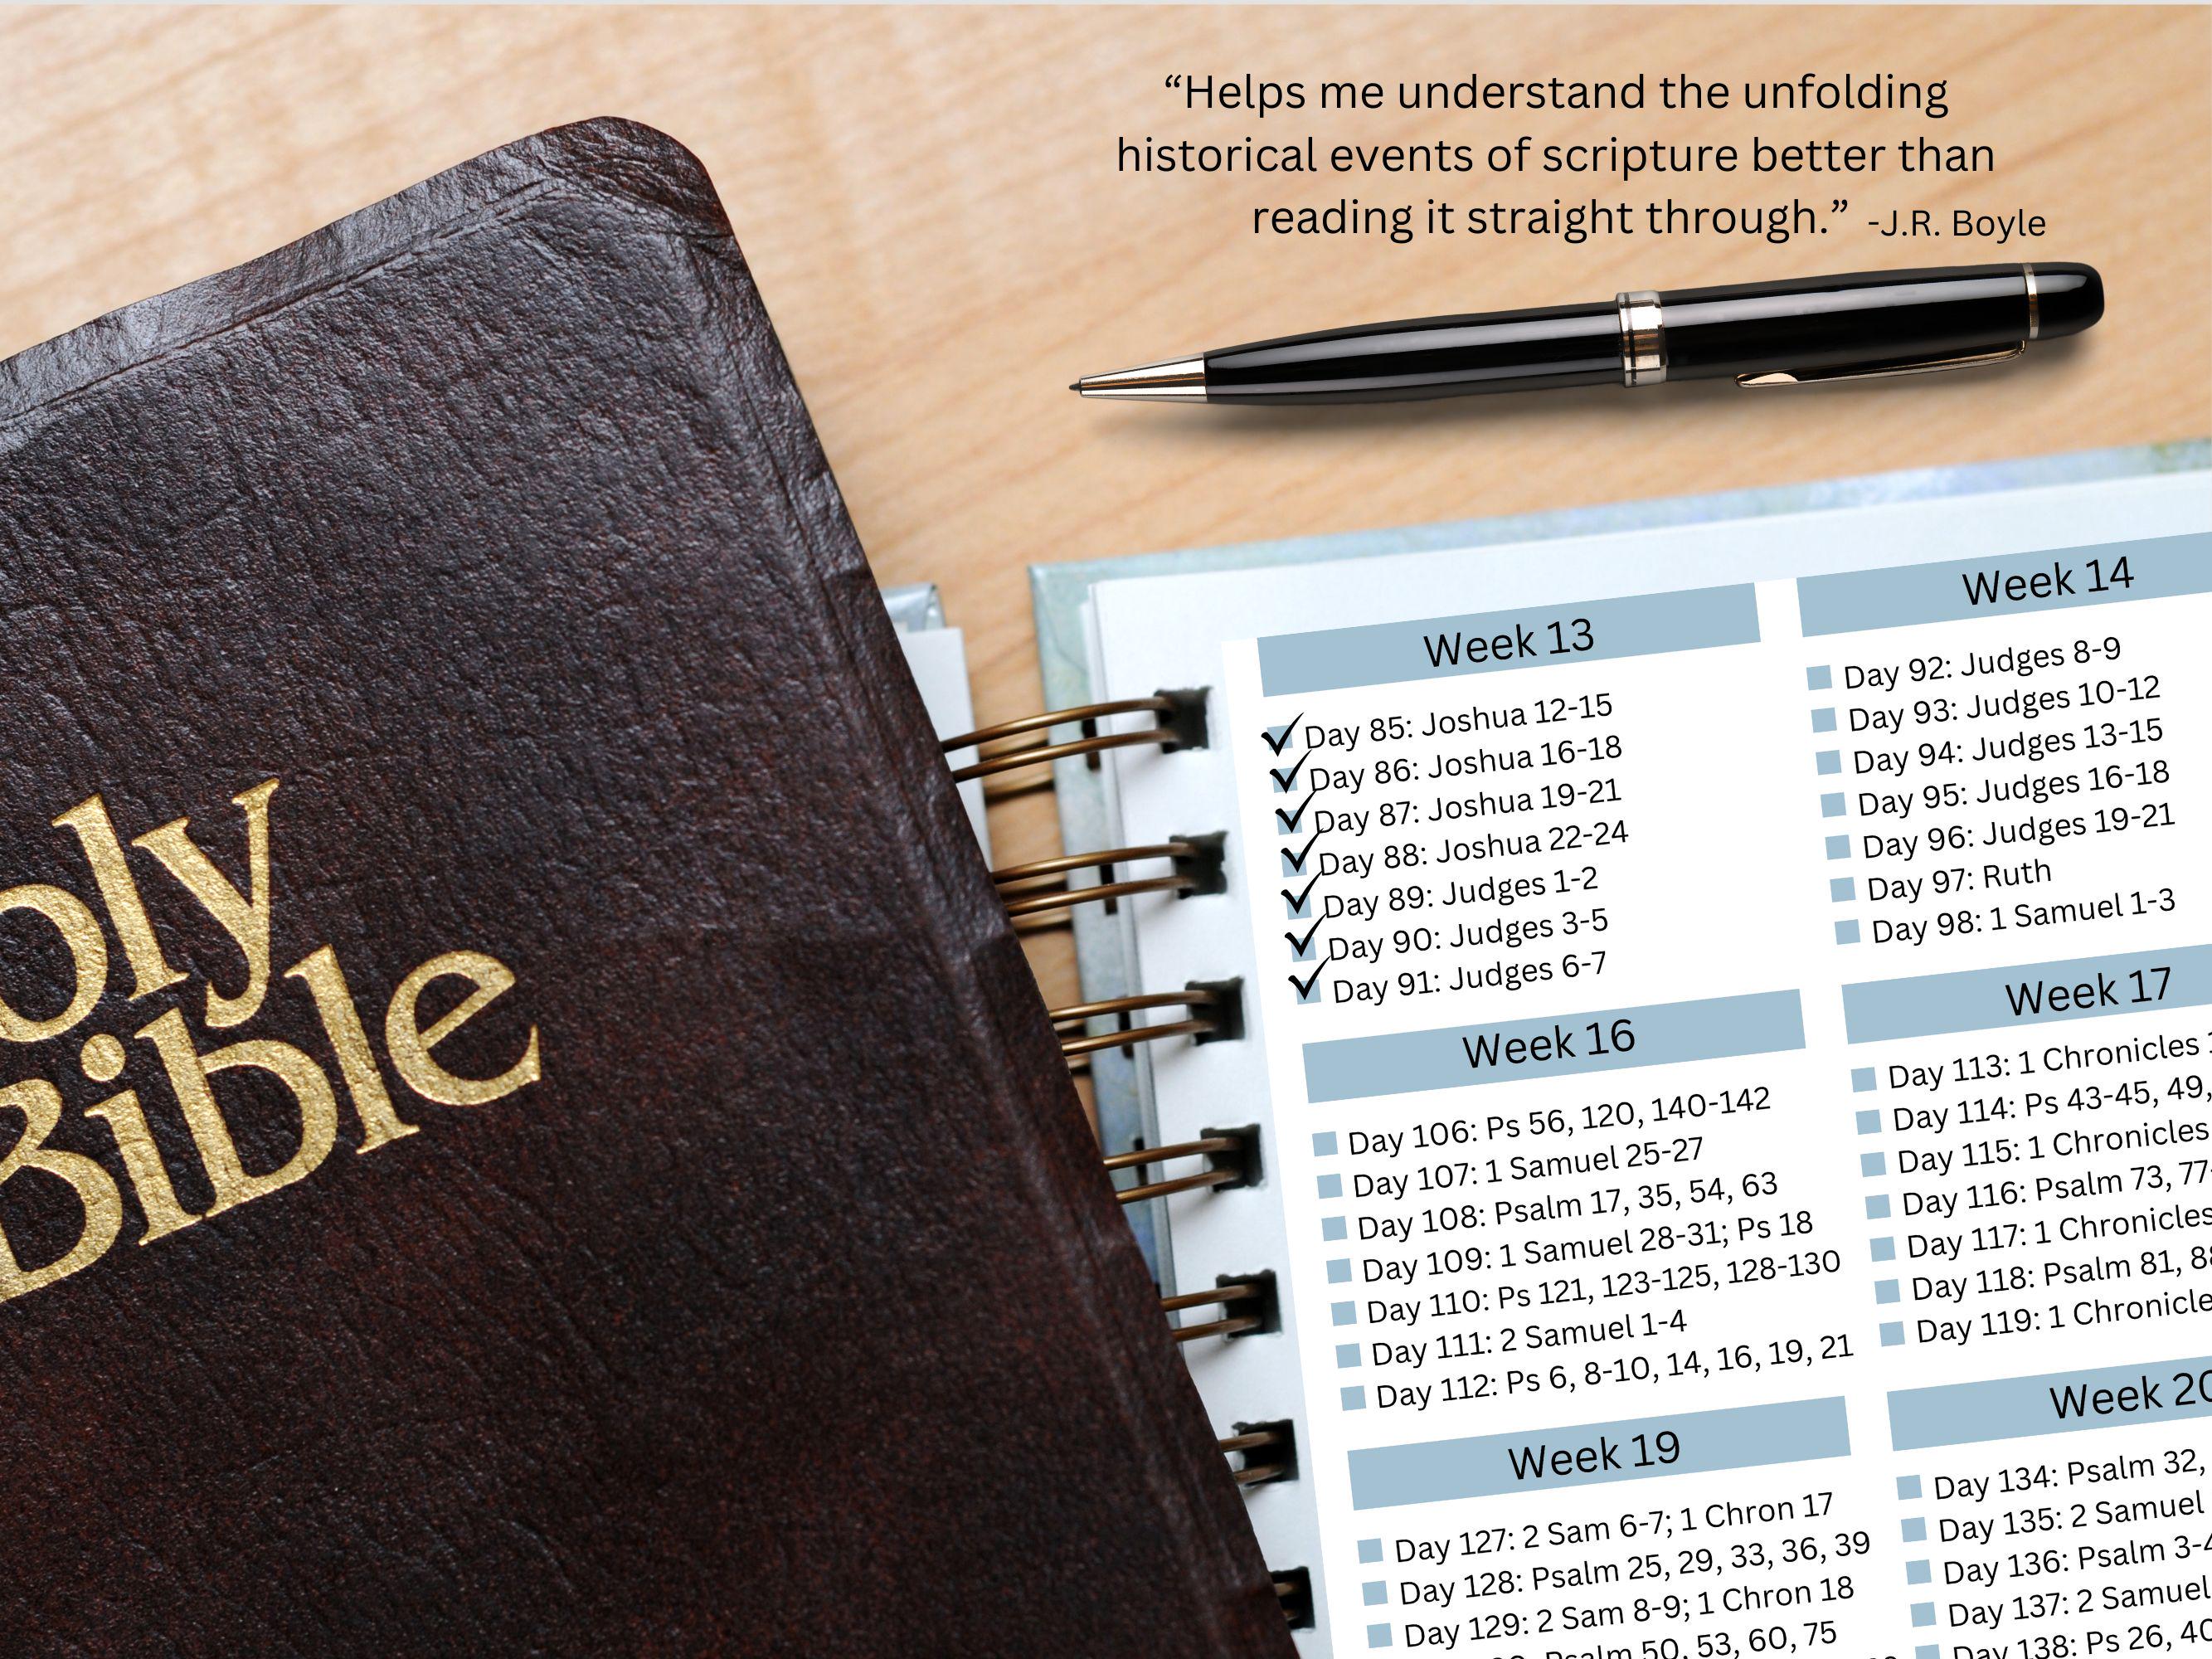 “Helps me understand the unfolding
historical events of scripture better than
reading it straight through.” -J.R. Boyle
oly
Bible
Week 13
Day 85: Joshua 12-15
Day 86: Joshua 16-18
Day 87: Joshua 19-21
Day 88: Joshua 22-24
Day 89: Judges 1-2
Day 90: Judges 3-5
Day 91: Judges 6-7
Week 14
Day 92: Judges 8-9
Day 93: Judges 10-12
Day 94: Judges 13-15
Day 95: Judges 16-18
Day 96: Judges 19-21
Day 97: Ruth
Day 98: 1 Samuel 1-3
Week 16
Day 106: Ps 56, 120, 140-142
Day 107: 1 Samuel 25-27
Day 108: Psalm 17, 35, 54, 63
Day 109: 1 Samuel 28-31; Ps 18
Day 110: Ps 121, 123-125, 128-130
Day 111: 2 Samuel 1-4
Day 112: Ps 6, 8-10, 14, 16, 19, 21
Week 17
Day 113: 1 Chronicles
Day 114: Ps 43-45, 49,
Day 115: 1 Chronicles
Day 116: Psalm 73, 77-
Day 117: 1 Chronicles
Day 118: Psalm 81,
Day 119: 1 Chronicle
Week 19
Day 127: 2 Sam 6-7; 1 Chron 17
Day 128: Psalm 25, 29, 33, 36, 39
Day 129: 2 Sam 8-9; 1 Chron 18
Psalm 50, 53, 60, 75
Week 20
Day 134: Psalm 32,
Day 135: 2 Samuel
Day 136: Psalm 3-4
Day 137: 2 Samuel
Day 138: Ps 26, 40